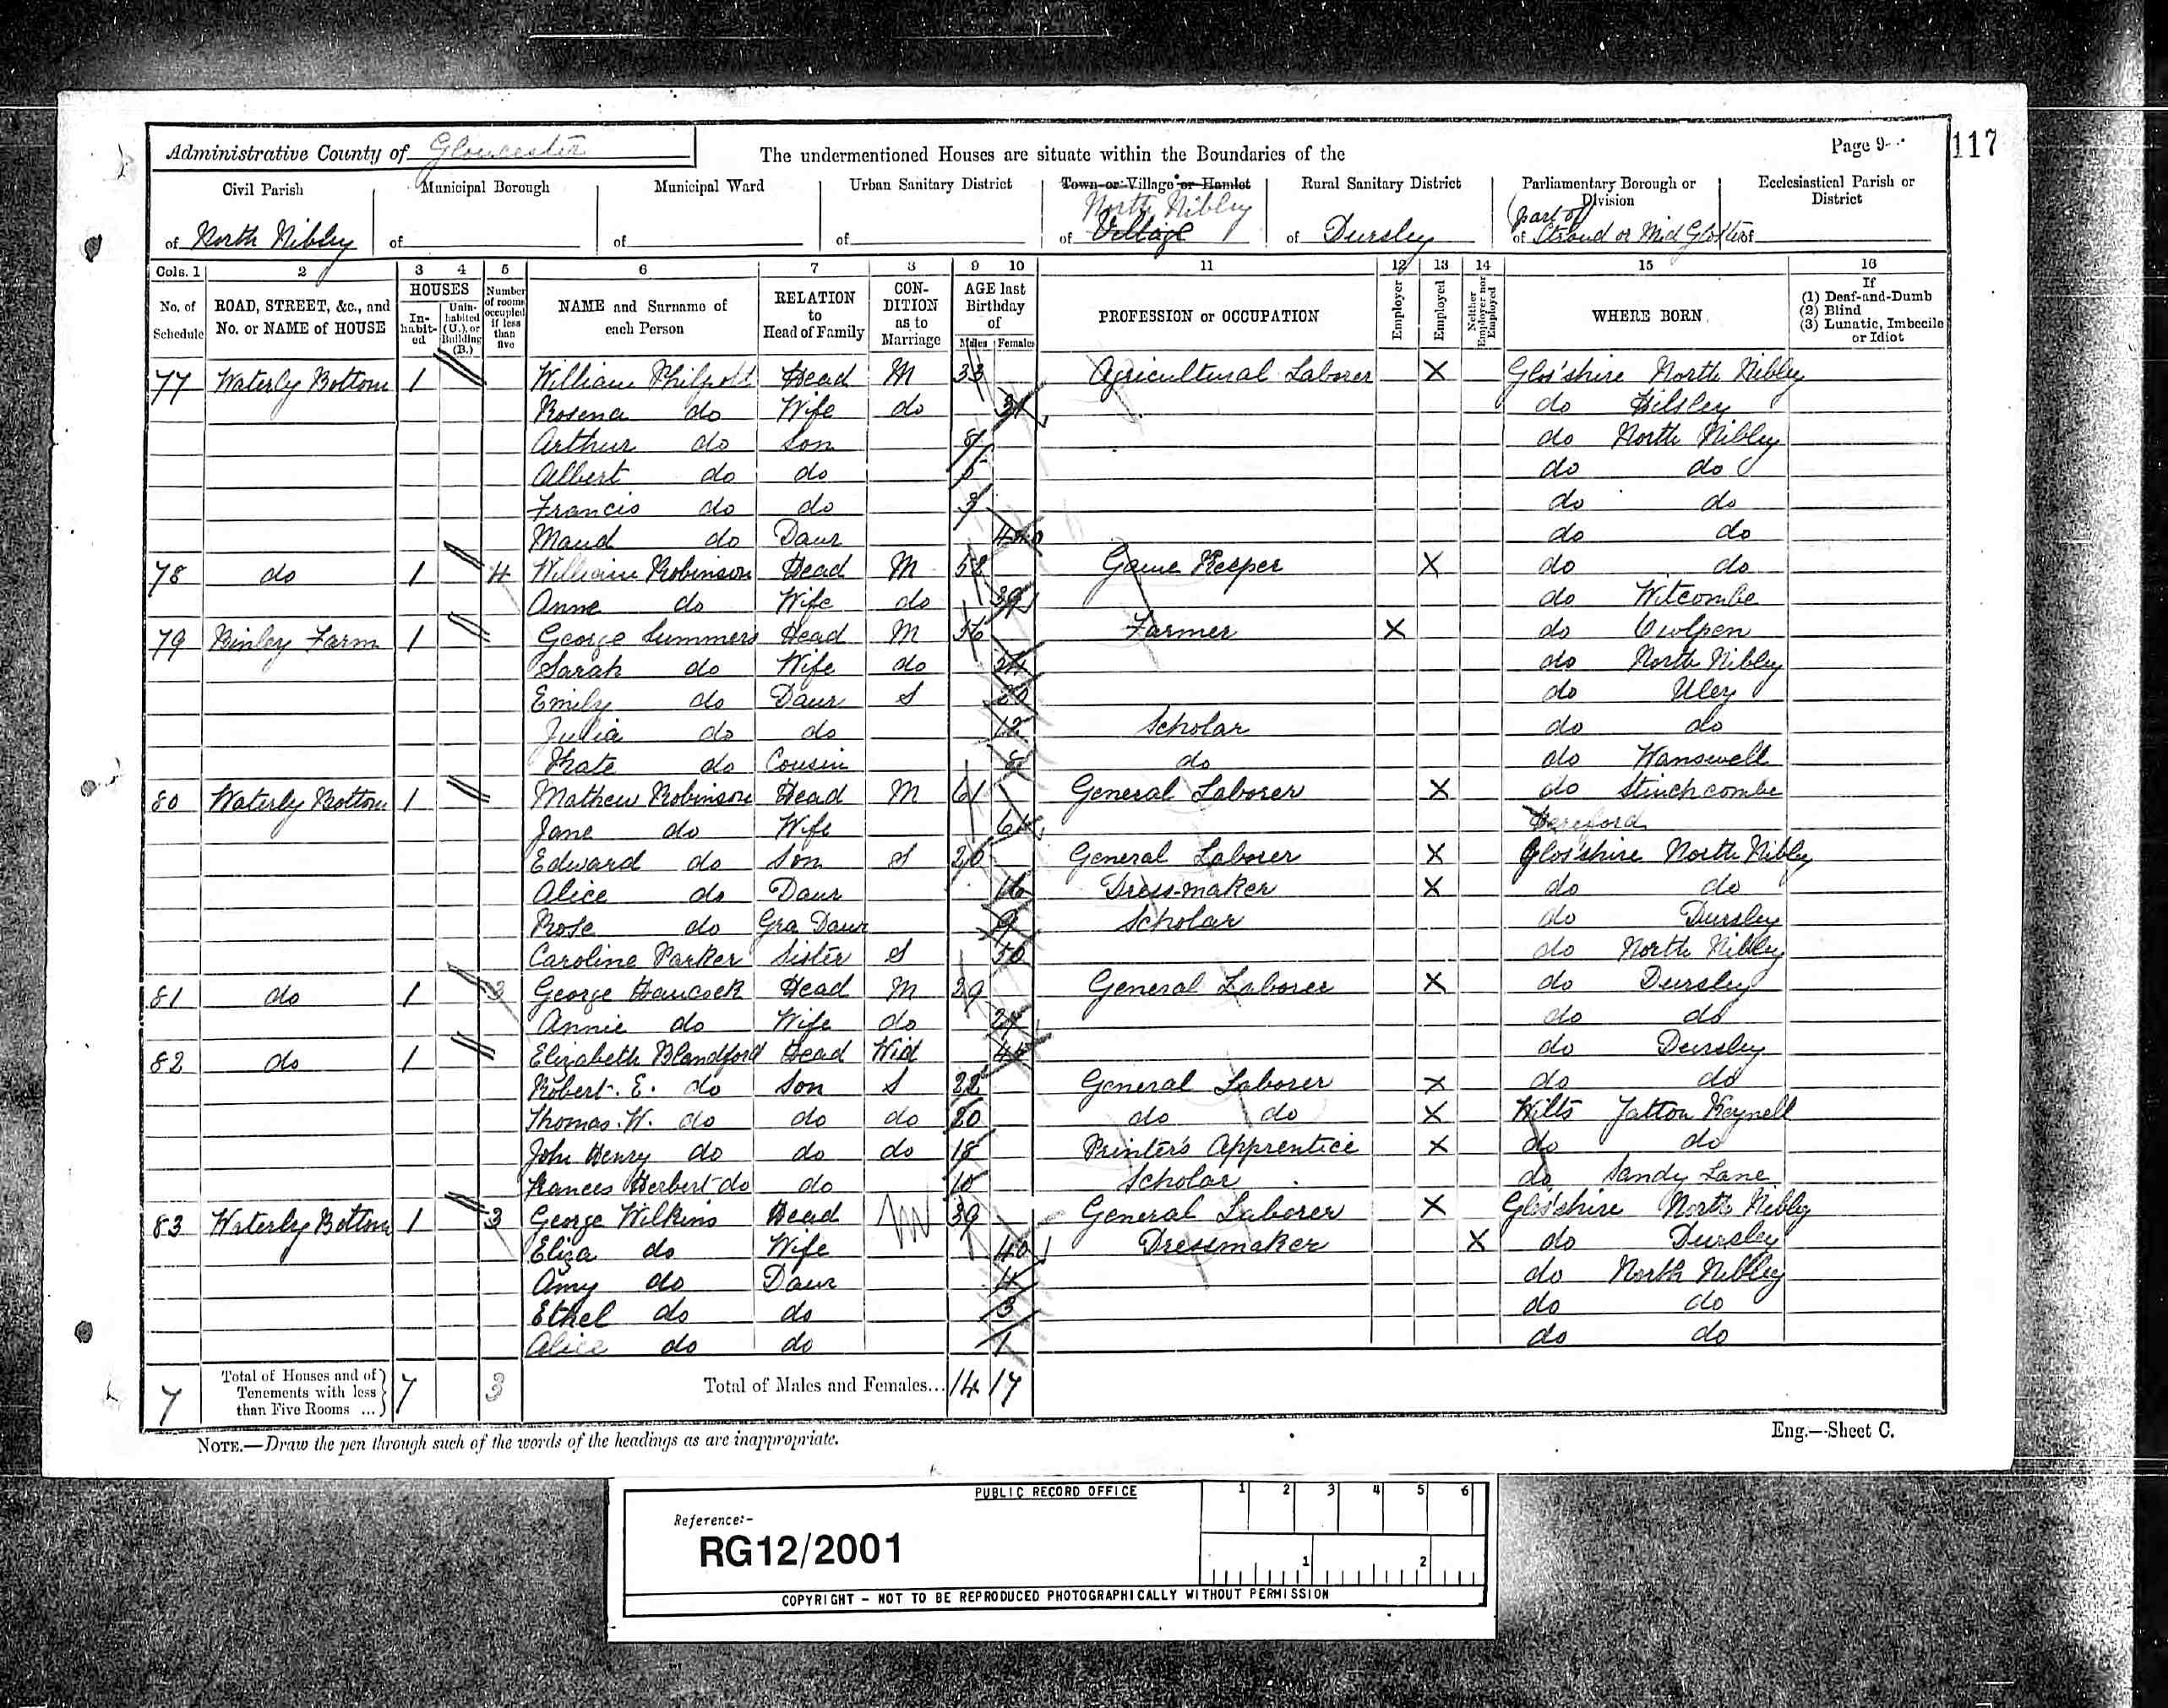 Administrative County of Gloucester
The undermentioned Houses are situate within the Boundaries of the
Page 9
117
Civil Parish
of North Nibley
Municipal Borough
of
Municipal Ward
of
Urban Sanitary District
of
Town or Village or Hamlet
North Nibley
of Village
Rural Sanitary District
of Dursley
Parliamentary Borough or Division
(part of)
of Stroud or Mid Glo'ster
Ecclesiastical Parish or District
of
Cols. 1 2 3 4 5 6 7 8 9 10 11 12 13 14 15 16
No. of Schedule
ROAD, STREET, &c., and No. or NAME of HOUSE
HOUSES
In-habit-ed
Unin-habited (U.), or Building (B.)
Number of rooms occupied if less than five
NAME and Surname of each Person
RELATION to Head of Family
CON-DITION as to Marriage
AGE last Birthday of
Males Females
PROFESSION or OCCUPATION
Employer
Employed
Neither Employer nor Employed
WHERE BORN
If
(1) Deaf-and-Dumb
(2) Blind
(3) Lunatic, Imbecile or Idiot
77 Waterly Bottom 1 William Philpott Head M 33 Agricultural Laborer X Glos'shire North Nibley
Rosena do Wife do 31 do Hilsley
Arthur do Son 8 do North Nibley
Albert do do 5 do do
Francis do do 3 do do
Maud do Daur do do
78 do 1 4 William Robinson Head M 58 Game Keeper X do do
Anne do Wife do 39 do Witcombe
79 Binley Farm 1 George Summers Head M 56 Farmer X do Owlpen
Sarah do Wife do 24 do North Nibley
Emily do Daur S 20 do Uley
Julia do do 12 Scholar do do
Kate do Cousin 8 do do Wanswell
80 Waterly Bottom 1 Mathew Robinson Head M 61 General Laborer X do Stinchcombe
Jane do Wife Hereford
Edward do Son S 20 General Laborer X Glos'shire North Nibley
Alice do Daur 16 Dress-maker X do do
Rose do Gra Daur 9 Scholar do Dursley
Caroline Parker Sister S 50 do North Nibley
81 do 1 3 George Hancock Head M 29 General Laborer X do Dursley
Annie do Wife do do do
82 do 1 Elizabeth Blandford Head Wid do Dursley
Robert. E. do Son S 22 General Laborer X do do
Thomas. W. do do do 20 do do X Wilts Yatton Keynell
John Henry do do do 18 Printer's Apprentice X do do
Frances Herbert do do 10 Scholar do Sandy Lane
83 Waterly Bottom 1 3 George Wilkins Head M 39 General Laborer X Glos'shire North Nibley
Eliza do Wife 40 Dressmaker X do Dursley
Amy do Daur 4 do North Nibley
Ethel do do 3 do do
Alice do do 1 do do
7 Total of Houses and of Tenements with less than Five Rooms ... 7 3 Total of Males and Females... 14 17
NOTE.—Draw the pen through such of the words of the headings as are inappropriate.
Eng.—Sheet C.
PUBLIC RECORD OFFICE
1 2 3 4 5 6
Reference:-
RG12/2001
1 2
COPYRIGHT - NOT TO BE REPRODUCED PHOTOGRAPHICALLY WITHOUT PERMISSION